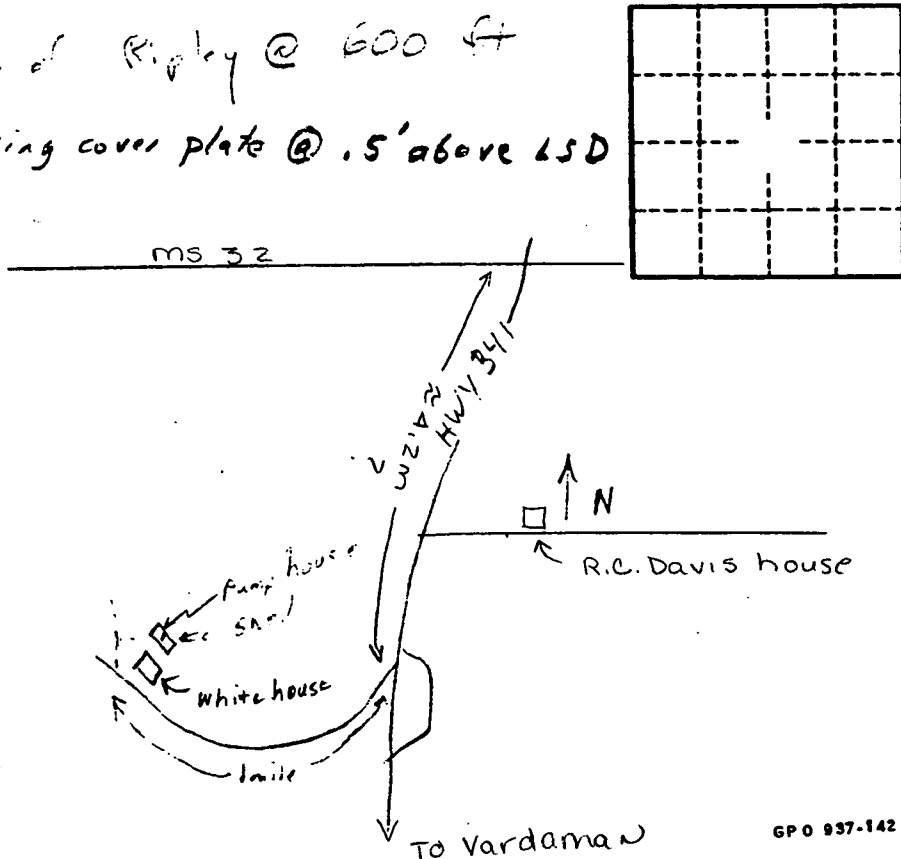 of Ripley @ 600 ft
ing cover plate @ .5' above LSD
MS 32
HWY 341
≈ 4.2m
N
R.C. Davis house
pump house
white house
1 mile
TO Vardaman
GPO 937-142